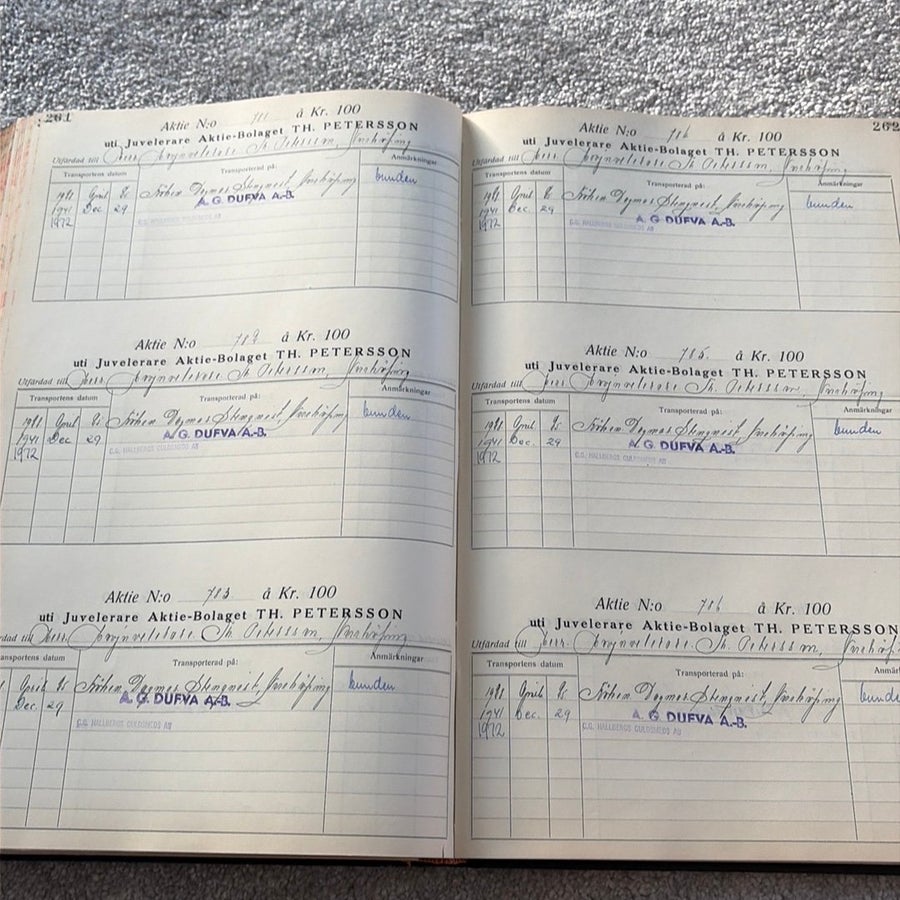 261
Aktie N:o 781 à Kr. 100
uti Juvelerare Aktie-Bolaget TH. PETERSSON
Utfärdad till Herr Th. Petersson,
Transportens datum Transporterad på: Anmärkningar
April Fröken Dagmar Stenqvist, bunden
1941 Dec. 29 A. G. DUFVA A.-B.
1972 C.G. HALLBERGS GULDSMEDS AB
Aktie N:o 782 à Kr. 100
uti Juvelerare Aktie-Bolaget TH. PETERSSON
Utfärdad till Herr Th. Petersson,
Transportens datum Transporterad på: Anmärkningar
April Fröken Dagmar Stenqvist, bunden
1941 Dec 29 A. G. DUFVA A.-B.
1972 C.G. HALLBERGS GULDSMEDS AB
Aktie N:o 783 à Kr. 100
uti Juvelerare Aktie-Bolaget TH. PETERSSON
rdad till Herr Th. Petersson,
ansportens datum Transporterad på: Anmärkningar
April Fröken Dagmar Stenqvist, bunden
Dec. 29 A. G. DUFVA A.-B.
C.G. HALLBERGS GULDSMEDS AB
262
Aktie N:o à Kr. 100
uti Juvelerare Aktie-Bolaget TH. PETERSSON
Utfärdad till Herr Th. Petersson,
Transportens datum Transporterad på: Anmärkningar
April Fröken Dagmar Stenqvist, bunden
1941 Dec. 29 A. G. DUFVA A.-B.
1972 C.G. HALLBERGS GULDSMEDS AB
Aktie N:o 785. à Kr. 100
uti Juvelerare Aktie-Bolaget TH. PETERSSON
Utfärdad till Herr Th. Petersson,
Transportens datum Transporterad på: Anmärkningar
April Fröken Dagmar Stenqvist, bunden
1941 Dec. 29 A. G. DUFVA A.-B.
1972 C.G. HALLBERGS GULDSMEDS AB
Aktie N:o 786 à Kr. 100
uti Juvelerare Aktie-Bolaget TH. PETERSSON
Utfärdad till Herr Th. Petersson,
Transportens datum Transporterad på: Anmärk
April Fröken Dagmar Stenqvist, bunde
1941 Dec. 29 A. G. DUFVA A.-B.
1972 C.G. HALLBERGS GULDSMEDS AB